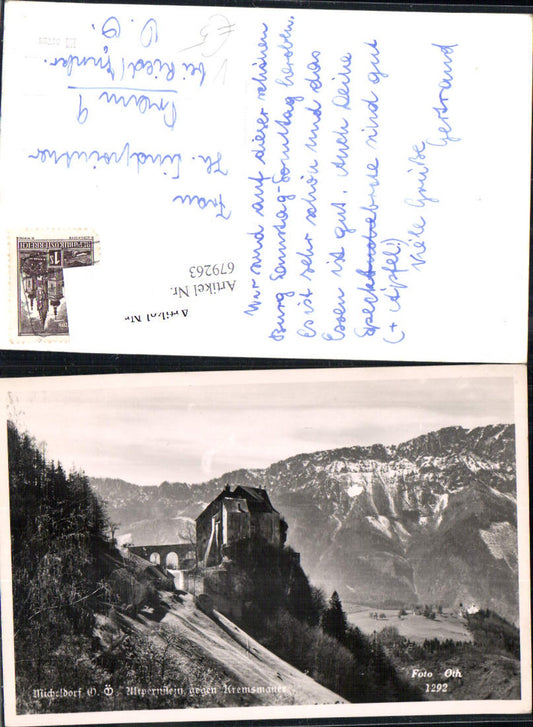 Wir sind auf dieser schönen
Burg Samstag-Sonntag heroben.
Es ist sehr schön und das
Essen ist gut. Auch Deine
Speckbrode sind gut
(+ Äpfel!)
Viele Grüße
Gertraud
Frau
Hr.
9
bei Ried/Innkr.
O.Ö.
REPUBLIK ÖSTERREICH
Artikel Nr.
679263
Artikel Nr.
Micheldorf O. Ö. Altpernstein, gegen Kremsmauer
Foto Oth.
1292